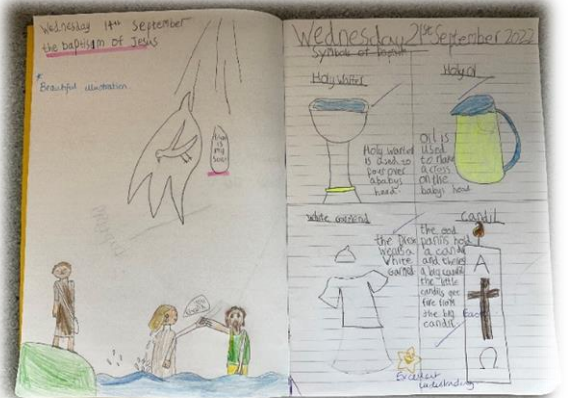 Wednesday 14th September
the baptism of Jesus
Beautiful illustration
this
is
my
son
Wednesday 21st September 2022
Symbols of
Holy Water
Holy oil
Holy Warter
is used to
Pour over
a babys
head.
Oil is
used
to make
a cross
on the
babys head
White garmend
the
wears a
White
Candil
the god
parints hold
a candil
and theres
a big candil
the little
candils get
fire from
the big
candil.
Α
Ω
Excellent
understanding